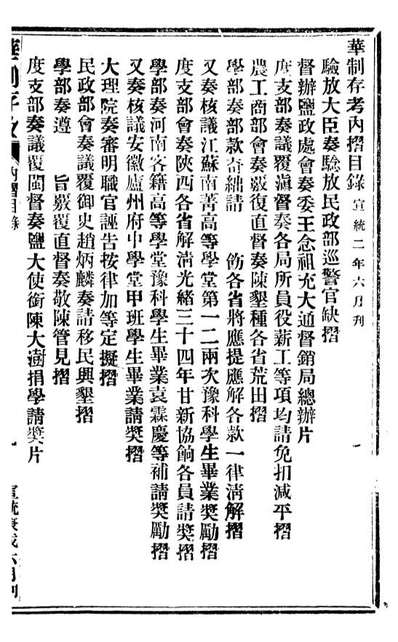 華制存考內摺目錄 宣統二年六月刊
驗放大臣奏驗放民政部巡警官缺摺
督辦鹽政處會奏委王念祖充大通督銷局總辦片
度支部奏議覆滇督奏各局所員役薪工等項均請免扣減平摺
農工商部會奏嚴復直督奏陳墾種各省荒田摺
學部奏部款奇絀請 飭各省將應提應解各款一律清解摺
又奏核議江蘇南菁高等學堂第一二兩次豫科學生畢業獎勵摺
度支部會奏陝西各省解清光緒三十四年甘新協餉各員請獎摺
學部奏河南客籍高等學堂豫科學生畢業袁霖慶等補請獎勵摺
又奏核議安徽廬州府中學堂甲班學生畢業請獎摺
大理院奏審明職官誣告按律加等定擬摺
民政部會奏議覆御史趙炳麟奏請移民興墾摺
學部奏遵 旨嚴覆直督奏敬陳管見摺
度支部奏議覆閩督奏鹽大使銜陳大澍捐學請獎片